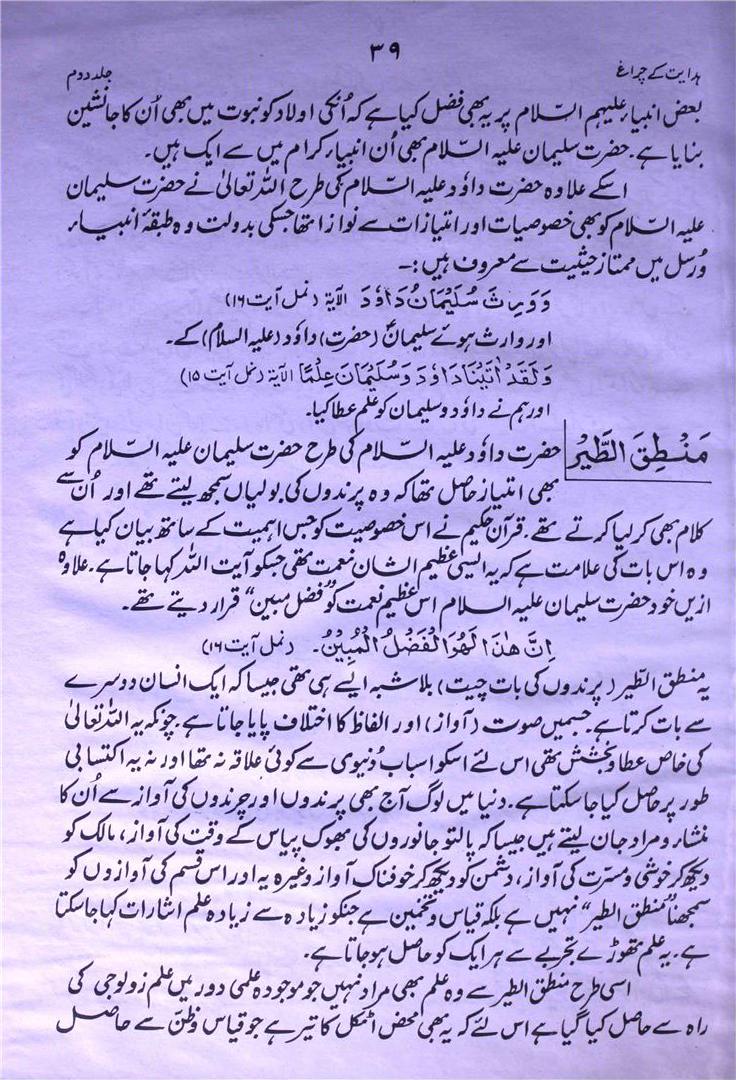 ۳۹
ہدایت کے چراغ
جلد دوم
بعض انبیاء علیہم السّلام پر یہ بھی فضل کیا ہے کہ اُنکی اولاد کو نبوت میں بھی اُن کا جانشین
بنایا ہے۔ حضرت سلیمان علیہ السّلام بھی اُن انبیاء کرام میں سے ایک ہیں۔
اسکے علاوہ حضرت داؤد علیہ السّلام کی طرح اللہ تعالیٰ نے حضرت سلیمان
علیہ السّلام کو بھی خصوصیات اور امتیازات سے نوازا تھا جسکی بدولت وہ طبقۂ انبیاء
ورُسل میں ممتاز حیثیت سے معروف ہیں:۔
وَوَرِثَ سُلَيْمَانُ دَاوٗدَ الآیۃ (نمل آیت ۱۶)
اور وارث ہوئے سلیمانؑ (حضرت) داؤد (علیہ السلام) کے۔
وَلَقَدْ اٰتَيْنَا دَاوٗدَ وَسُلَيْمَانَ عِلْمًا الآیۃ (نمل آیت ۱۵)
اور ہم نے داؤد و سلیمان کو علم عطا کیا۔
مَنْطِقَ الطَّيْر
حضرت داؤد علیہ السّلام کی طرح حضرت سلیمان علیہ السّلام کو
بھی امتیاز حاصل تھا کہ وہ پرندوں کی بولیاں سمجھ لیتے تھے اور اُن سے
کلام بھی کر لیا کرتے تھے۔ قرآن حکیم نے اس خصوصیت کو جس اہمیت کے ساتھ بیان کیا ہے
وہ اس بات کی علامت ہے کہ یہ ایسی عظیم الشان نعمت تھی جسکو آیت اللہ کہا جاتا ہے۔ علاوہ
ازیں خود حضرت سلیمان علیہ السلام اس عظیم نعمت کو "فضل مبین" قرار دیتے تھے۔
اِنَّ هٰذَا لَهُوَ الْفَضْلُ الْمُبِيْنُ۔ (نمل آیت ۱۶)
یہ منطق الطّیر (پرندوں کی بات چیت) بلاشبہ ایسے ہی تھی جیسا کہ ایک انسان دوسرے
سے بات کرتا ہے۔ جسمیں صوت (آواز) اور الفاظ کا اختلاف پایا جاتا ہے۔ چونکہ یہ اللہ تعالیٰ
کی خاص عطا و بخشش تھی اس لئے اسکو اسباب دُنیوی سے کوئی علاقہ نہ تھا اور نہ یہ اکتسابی
طور پر حاصل کیا جا سکتا ہے۔ دنیا میں لوگ آج بھی پرندوں اور چرندوں کی آواز سے اُن کا
منشاء و مراد جان لیتے ہیں جیسا کہ پالتو جانوروں کی بھوک پیاس کے وقت کی آواز، مالک کو
دیکھ کر خوشی و مسرت کی آواز، دشمن کو دیکھ کر خوفناک آواز وغیرہ یہ اور اس قسم کی آوازوں کو
سمجھنا "منطق الطیر" نہیں ہے بلکہ قیاس و تخمین ہے جنکو زیادہ سے زیادہ علم اشارات کہا جا سکتا
ہے۔ یہ علم تھوڑے تجربے سے ہر ایک کو حاصل ہو جاتا ہے۔
اسی طرح منطق الطیر سے وہ علم بھی مراد نہیں جو موجودہ علمی دور میں علم زولوجی کی
راہ سے حاصل کیا گیا ہے اس لئے کہ یہ بھی محض اٹکل کا تیر ہے جو قیاس و ظنّ سے حاصل